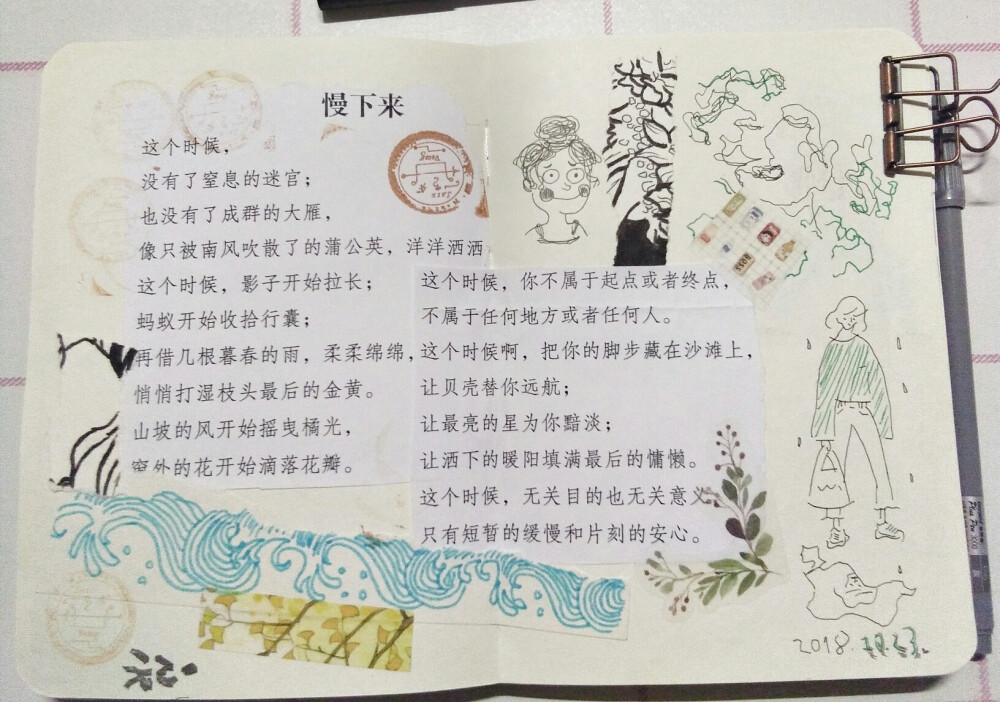 慢下来
这个时候，
没有了窒息的迷宫；
也没有了成群的大雁，
像只被南风吹散了的蒲公英，洋洋洒洒
这个时候，影子开始拉长；
蚂蚁开始收拾行囊；
再借几根暮春的雨，柔柔绵绵，
悄悄打湿枝头最后的金黄。
山坡的风开始摇曳橘光，
窗外的花开始滴落花瓣。
这个时候，你不属于起点或者终点，
不属于任何地方或者任何人。
这个时候啊，把你的脚步藏在沙滩上，
让贝壳替你远航；
让最亮的星为你黯淡；
让洒下的暖阳填满最后的慵懒。
这个时候，无关目的也无关意义
只有短暂的缓慢和片刻的安心。
2018.